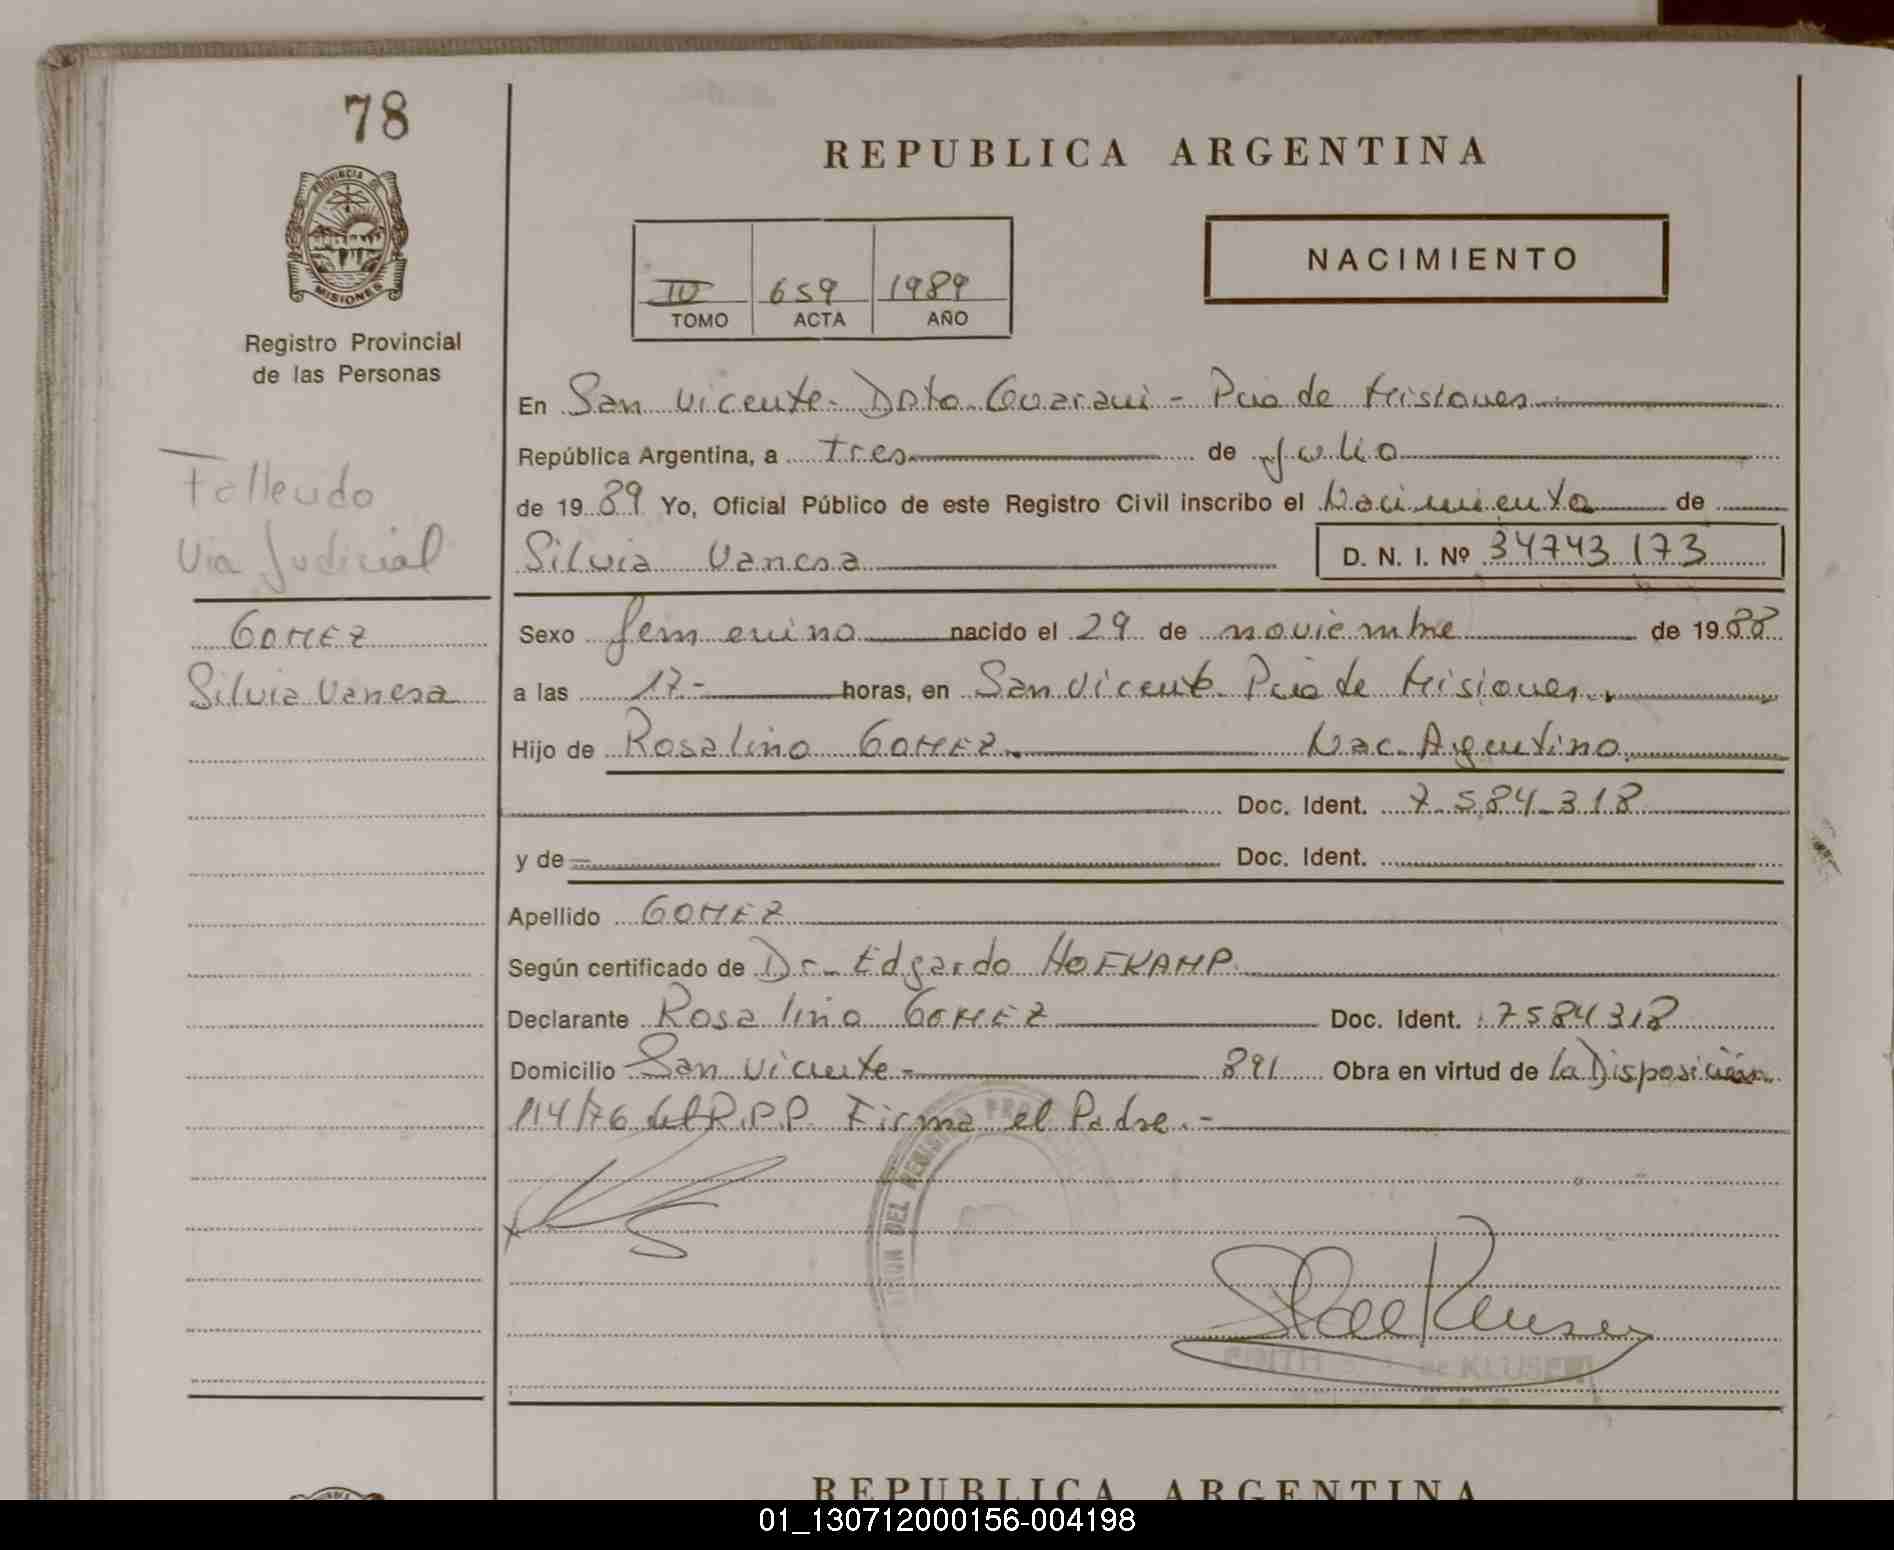 78
PROVINCIA DE
MISIONES
Registro Provincial
de las Personas
REPUBLICA ARGENTINA
NACIMIENTO
IV 659 1989
TOMO ACTA AÑO
En San Vicente - Dpto Guarani - Pcia de Misiones
República Argentina, a tres de Julio
de 1989 Yo, Oficial Público de este Registro Civil inscribo el Nacimiento de
Silvia Vanesa D. N. I. Nº 34743173
Fallecido
Via Judicial
GOMEZ
Silvia Vanesa
Sexo femenino nacido el 29 de noviembre de 1988
a las 17- horas, en San Vicente Pcia de Misiones.
Hijo de Rosalino GOMEZ. Nac. Argentino.
Doc. Ident. 7.584.318
y de Doc. Ident.
Apellido GOMEZ
Según certificado de Dr. Edgardo HOFKAMP.
Declarante Rosalino GOMEZ Doc. Ident. 7584318
Domicilio San Vicente - 891 Obra en virtud de la Disposición
114/76 del R.P.P. Firma el Padre.-
DEL REGISTRO PRO
EDITH de KLUSENER
REPUBLICA ARGENTINA
01_130712000156-004198